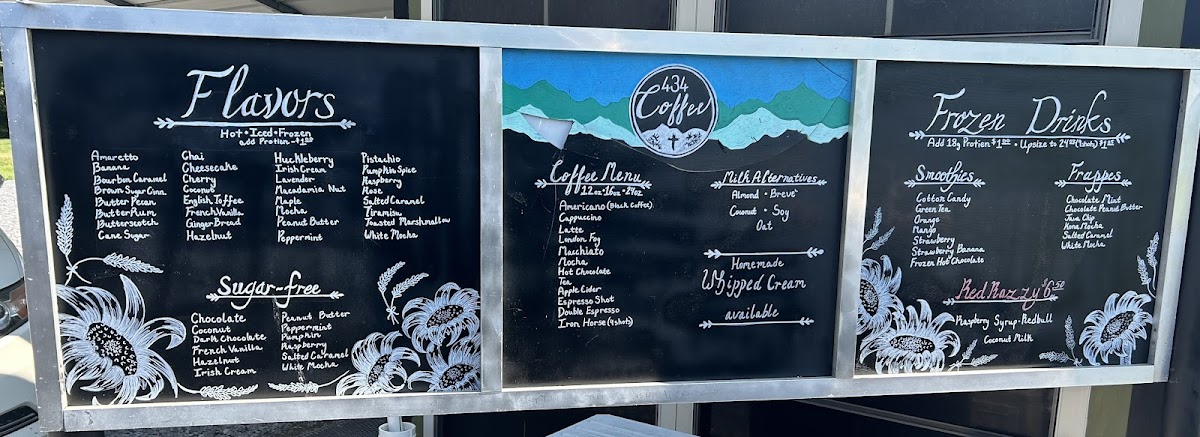 Flavors
Hot • Iced • Frozen
add Protien - $1.00
Amaretto
Banana
Bourbon Caramel
Brown Sugar Cinn.
Butter Pecan
Butter Rum
Butterscotch
Cane Sugar
Chai
Cheesecake
Cherry
Coconut
English Toffee
French Vanilla
Ginger Bread
Hazelnut
Huckleberry
Irish Cream
Lavender
Macadamia Nut
Maple
Mocha
Peanut Butter
Peppermint
Pistachio
Pumpkin Spice
Raspberry
Rose
Salted Caramel
Tiramisu
Toasted Marshmallow
White Mocha
Sugar-free
Chocolate
Coconut
Dark Chocolate
French Vanilla
Hazelnut
Irish Cream
Peanut Butter
Peppermint
Pumpkin
Raspberry
Salted Caramel
White Mocha
434
Coffee
Coffee Menu
12oz • 16oz • 24oz
Americano (Black Coffee)
Cappucino
Latte
London Fog
Macchiato
Mocha
Hot Chocolate
Tea
Apple Cider
Espresso Shot
Double Espresso
Iron Horse (4 shots)
Milk Alternatives
Almond • Breve
Coconut • Soy
Oat
Homemade
Whipped Cream
available
Frozen Drinks
Add 18g Protien $1.00 • Upsize to 24oz
Smoothies
Cotton Candy
Green Tea
Orange
Mango
Strawberry
Strawberry Banana
Frozen Hot Chocolate
Frappes
Chocolate Mint
Chocolate Peanut Butter
Java Chip
Kona Mocha
Salted Caramel
White Mocha
Red Razzy $6.50
Raspberry Syrup • Redbull
Coconut Milk